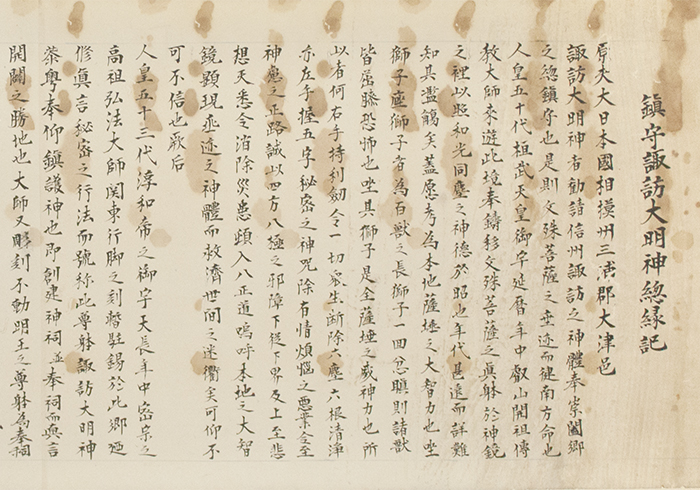 鎮守諏訪大明神總縁記
夫大日本國相摸州三浦郡大津邑
諏訪大明神者勧請信州諏訪之神體奉崇闔郷
之總鎮守也是則文殊菩薩之垂迹而健南方命也
人皇五十代桓武天皇御宇延暦年中叡山開祖傳
教大師來遊此境奉鋳移文殊菩薩之真躰於神鏡
之裡以照和光同塵之神徳於昭也年代甚遠而詳難
知其濫觴矣蓋愿考為本地薩埵之大智力也坐
獅子座獅子者為百獣之長獅子一囬忿瞋則諸獣
皆屈滕恐怖也坐其獅子是全薩埵之威神力也所
以者何右手持利劔令一切衆生断除六塵六根清浄
亦左手握五字秘密之神咒除有情煩惱之悪業令至
神應之正路誠以四方八極之邪障下従下界及上至悲
想天悉令消除災患頭入八正道嗚呼本地之大智
鏡顕現垂迹之神體而救濟世间之迷衢矣可仰不
可不信也厥后
人皇五十三代淳和帝之御宇天長年中密宗之
高祖弘法大師関東行脚之刻暫駐錫於此郷廼
修真言秘密之行法而號称此尊躰諏訪大明神
恭粤奉仰鎮護神也即創建神祠並奉祠而與言
開闢之勝地也大師又彫刻不動明王之尊躰為奉祠